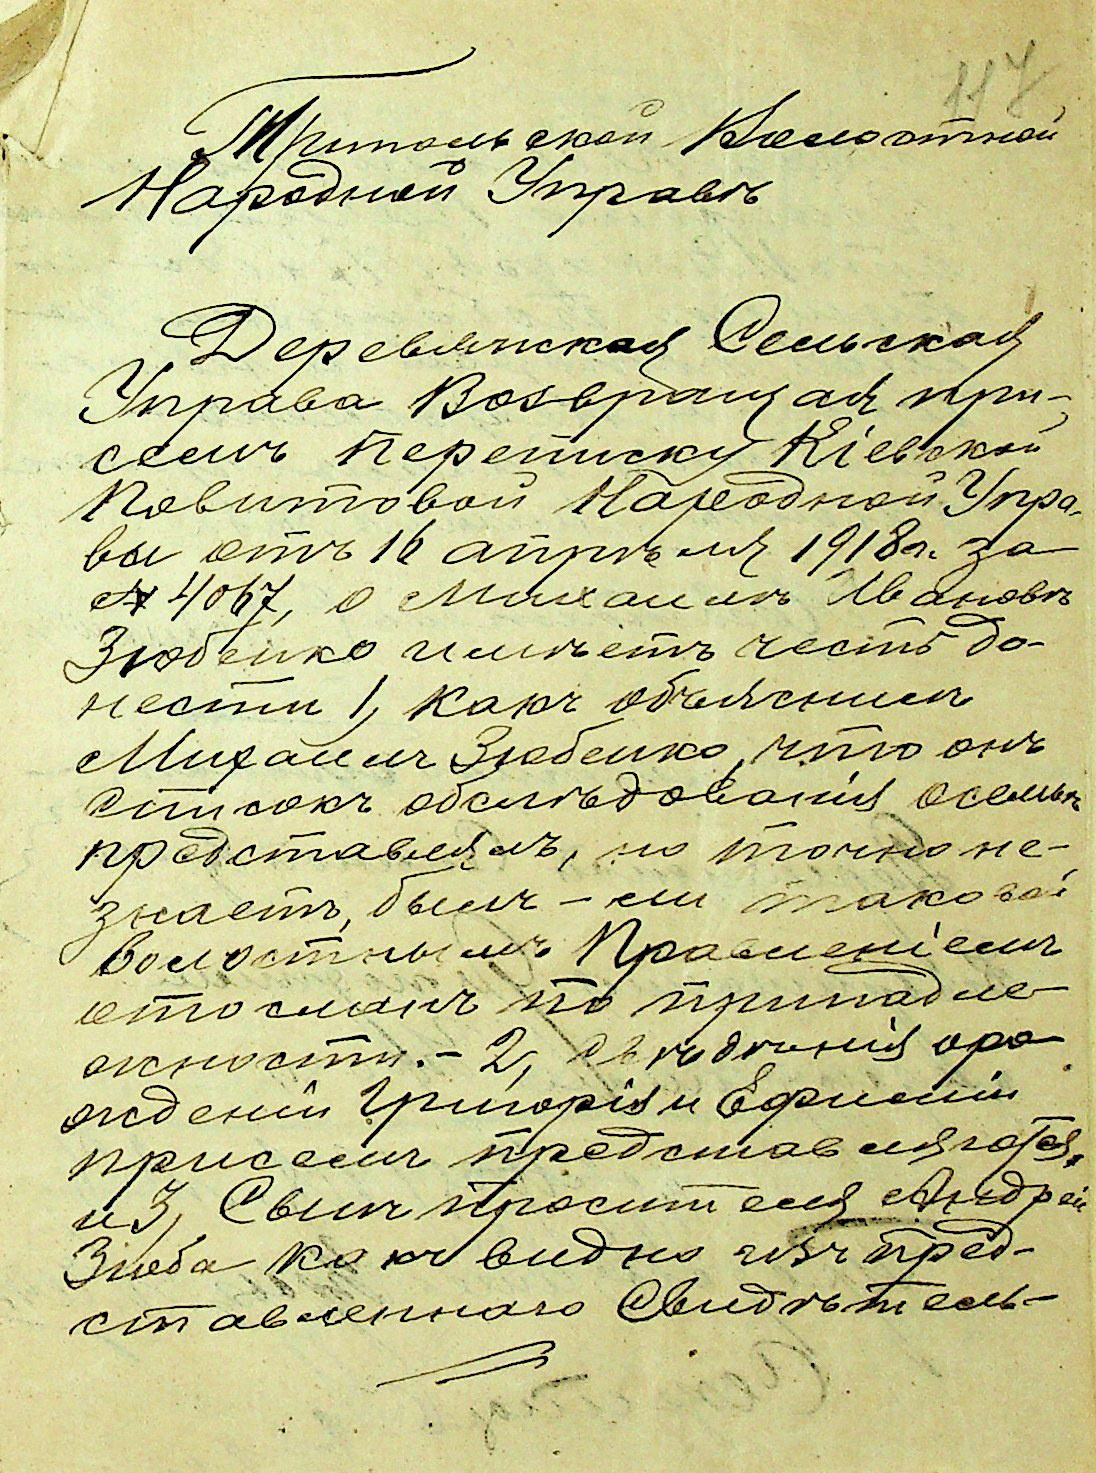 117
Трипольской Волостной
Народной Управѣ
Деревянская Сельская
Управа Возвращая при
семъ переписку Кіевской
Повитовой Народной Упра-
вы отъ 16 апрѣля 1918 г. за
№ 4067, о Михаилѣ Ивановѣ
Зюбенко имѣетъ честь до-
нести 1, какъ объяснилъ
Михаилъ Зюбенко, что онъ
списокъ обслѣдованія о семьѣ
представлялъ, но точно не-
знаетъ, былъ-ли таковой
волостнымъ Правленіемъ
отосланъ по принадле-
жности.- 2, свѣдѣнія о ро-
жденіи Григорія и Ефиміи
присемъ представляются,
и 3, Сынъ просителя Андрей
Зюба какъ видно изъ пред-
ставленнаго Свидѣтель-